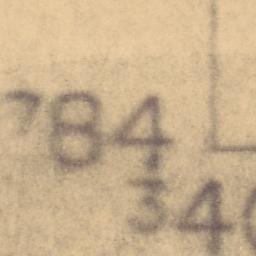 784
34